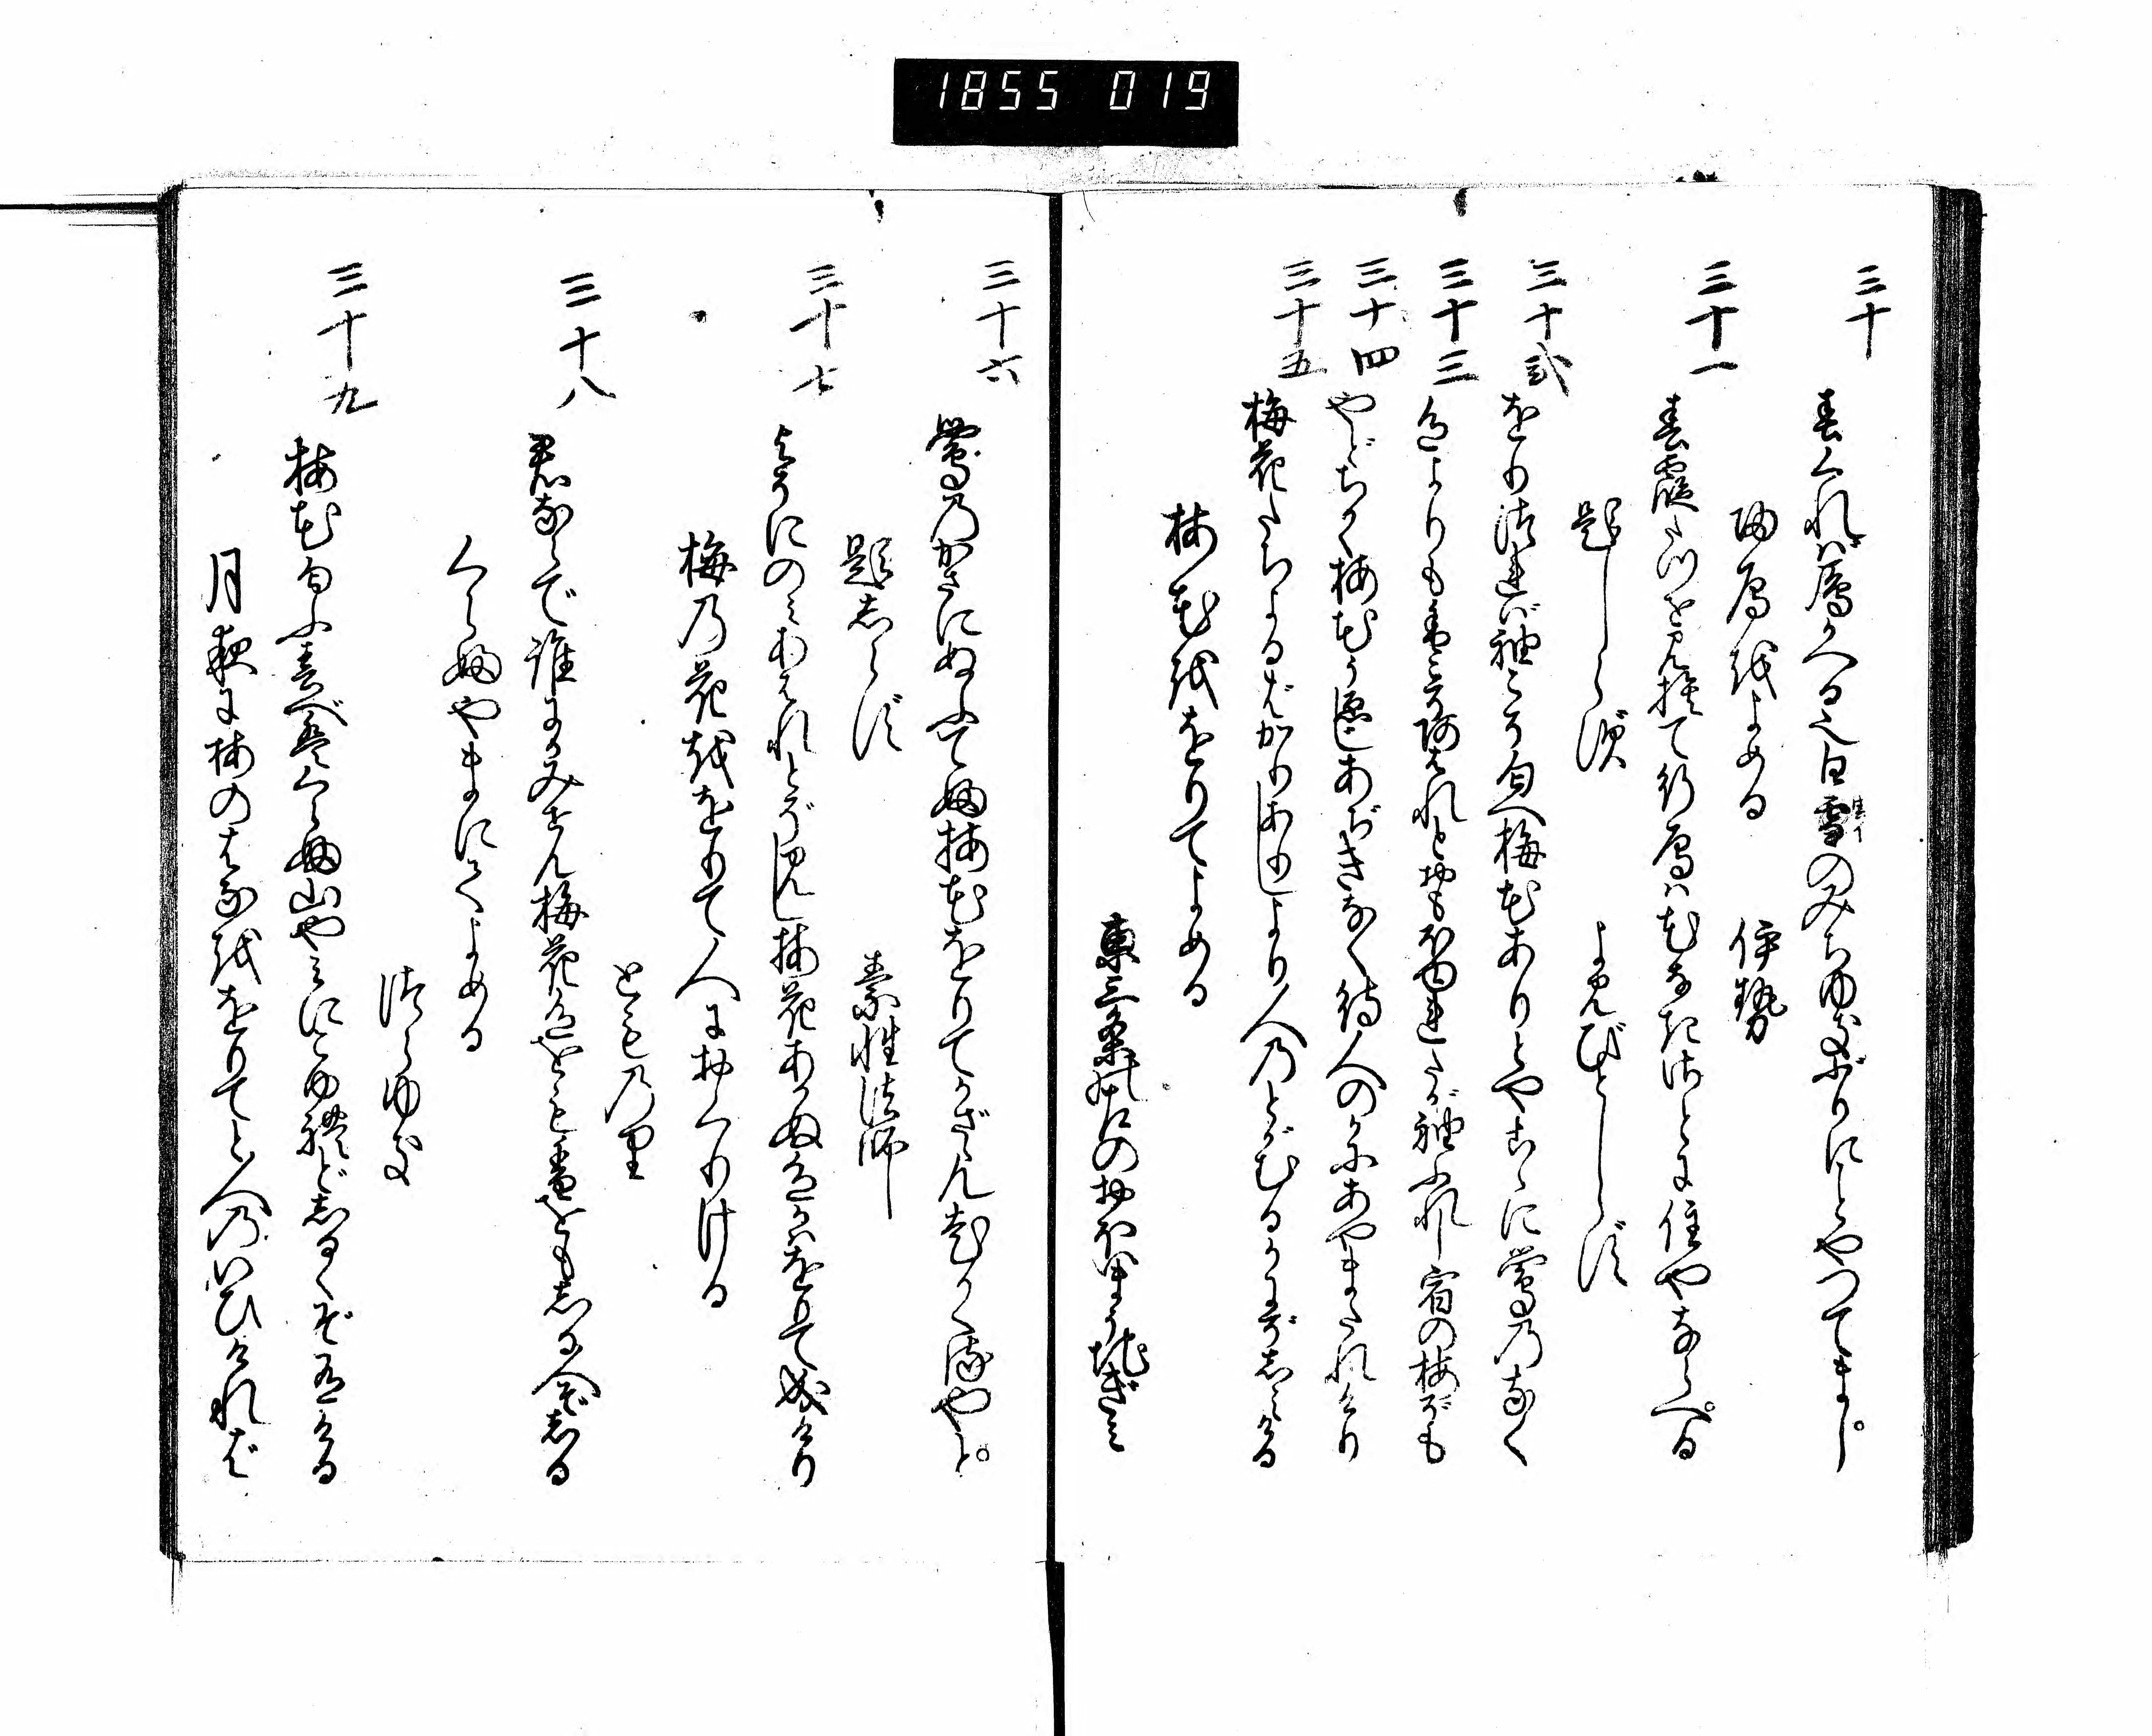 1855 019
三十
春くれば雁かへる也白雪のみちゆきぶりにことやつてまし
帰雁をよめる 伊勢
三十一
春霞たつを見捨て行雁は花なきさとに住やならへる
題しらず よみ人しらず
三十弐
をりつれば袖こそ匂へ梅花ありとやこゝに鶯のなく
三十三
色よりも香こそあはれとおもほゆれたが袖ふれし宿の梅ぞも
三十四
やどちかく梅花うゑじあぢきなく待人のかにあやまたれけり
三十五
梅花たちよるばかりありしより人のとがむるかにぞしみける
梅花ををりてよめる
東三条の左のおほいまうちぎみ
三十六
鶯のかさにぬふてふ梅花をりてかざさん老かくるやと
題しらず 素性法師
三十七
よそにのみあはれとぞ見し梅花あかぬ色かはをりて成けり
梅の花ををりて人におくりける
とものり
三十八
君ならで誰にかみせん梅花色をも香をもしる人ぞしる
くらふやまにてよめる
つらゆき
三十九
梅花匂ふ春べはくらふ山やみにこゆれどしるくぞ有ける
月夜に梅のはなををりてと人のいひければ